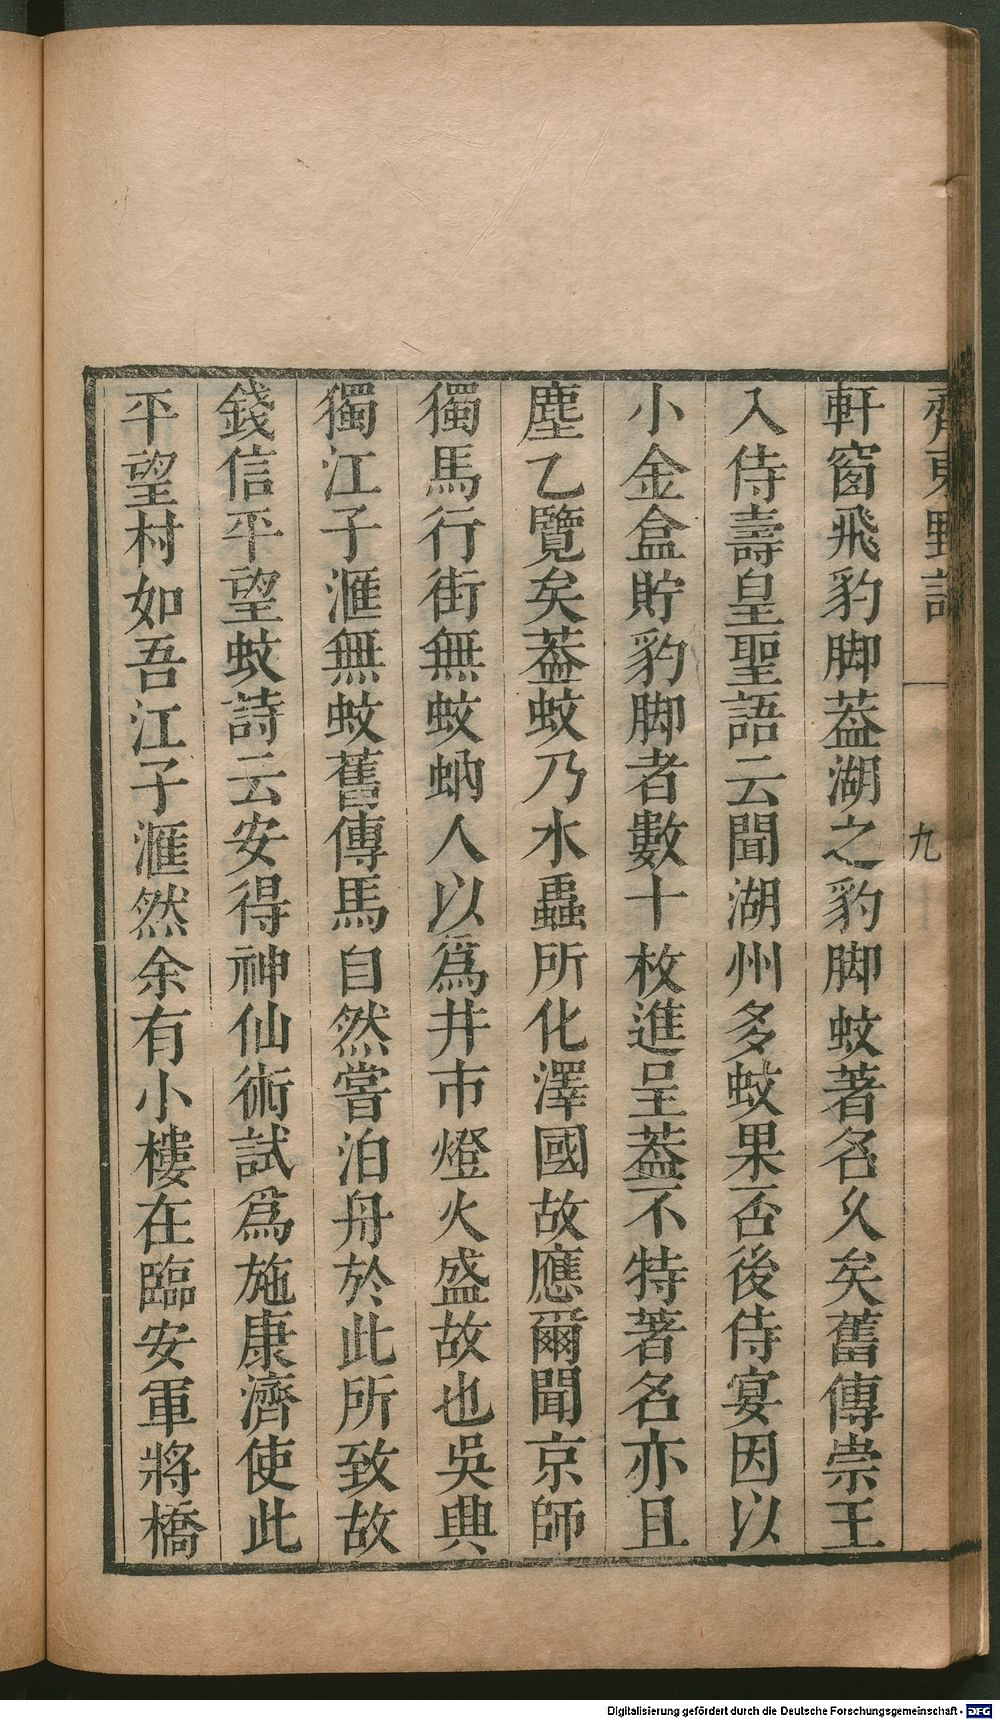 齊東野語
九
軒窗飛豹脚葢湖之豹脚蚊著名久矣舊傳崇王
入侍壽皇聖語云聞湖州多蚊果否後侍宴因以
小金盒貯豹脚者數十枚進呈葢不特著名亦且
塵乙覽矣葢蚊乃水蟲所化澤國故應爾聞京師
獨馬行街無蚊蚋人以爲井市燈火盛故也吳興
獨江子滙無蚊舊傳馬自然嘗泊舟於此所致故
錢信平望蚊詩云安得神仙術試爲施康濟使此
平望村如吾江子滙然余有小樓在臨安軍將橋
Digitalisierung gefördert durch die Deutsche Forschungsgemeinschaft - DFG